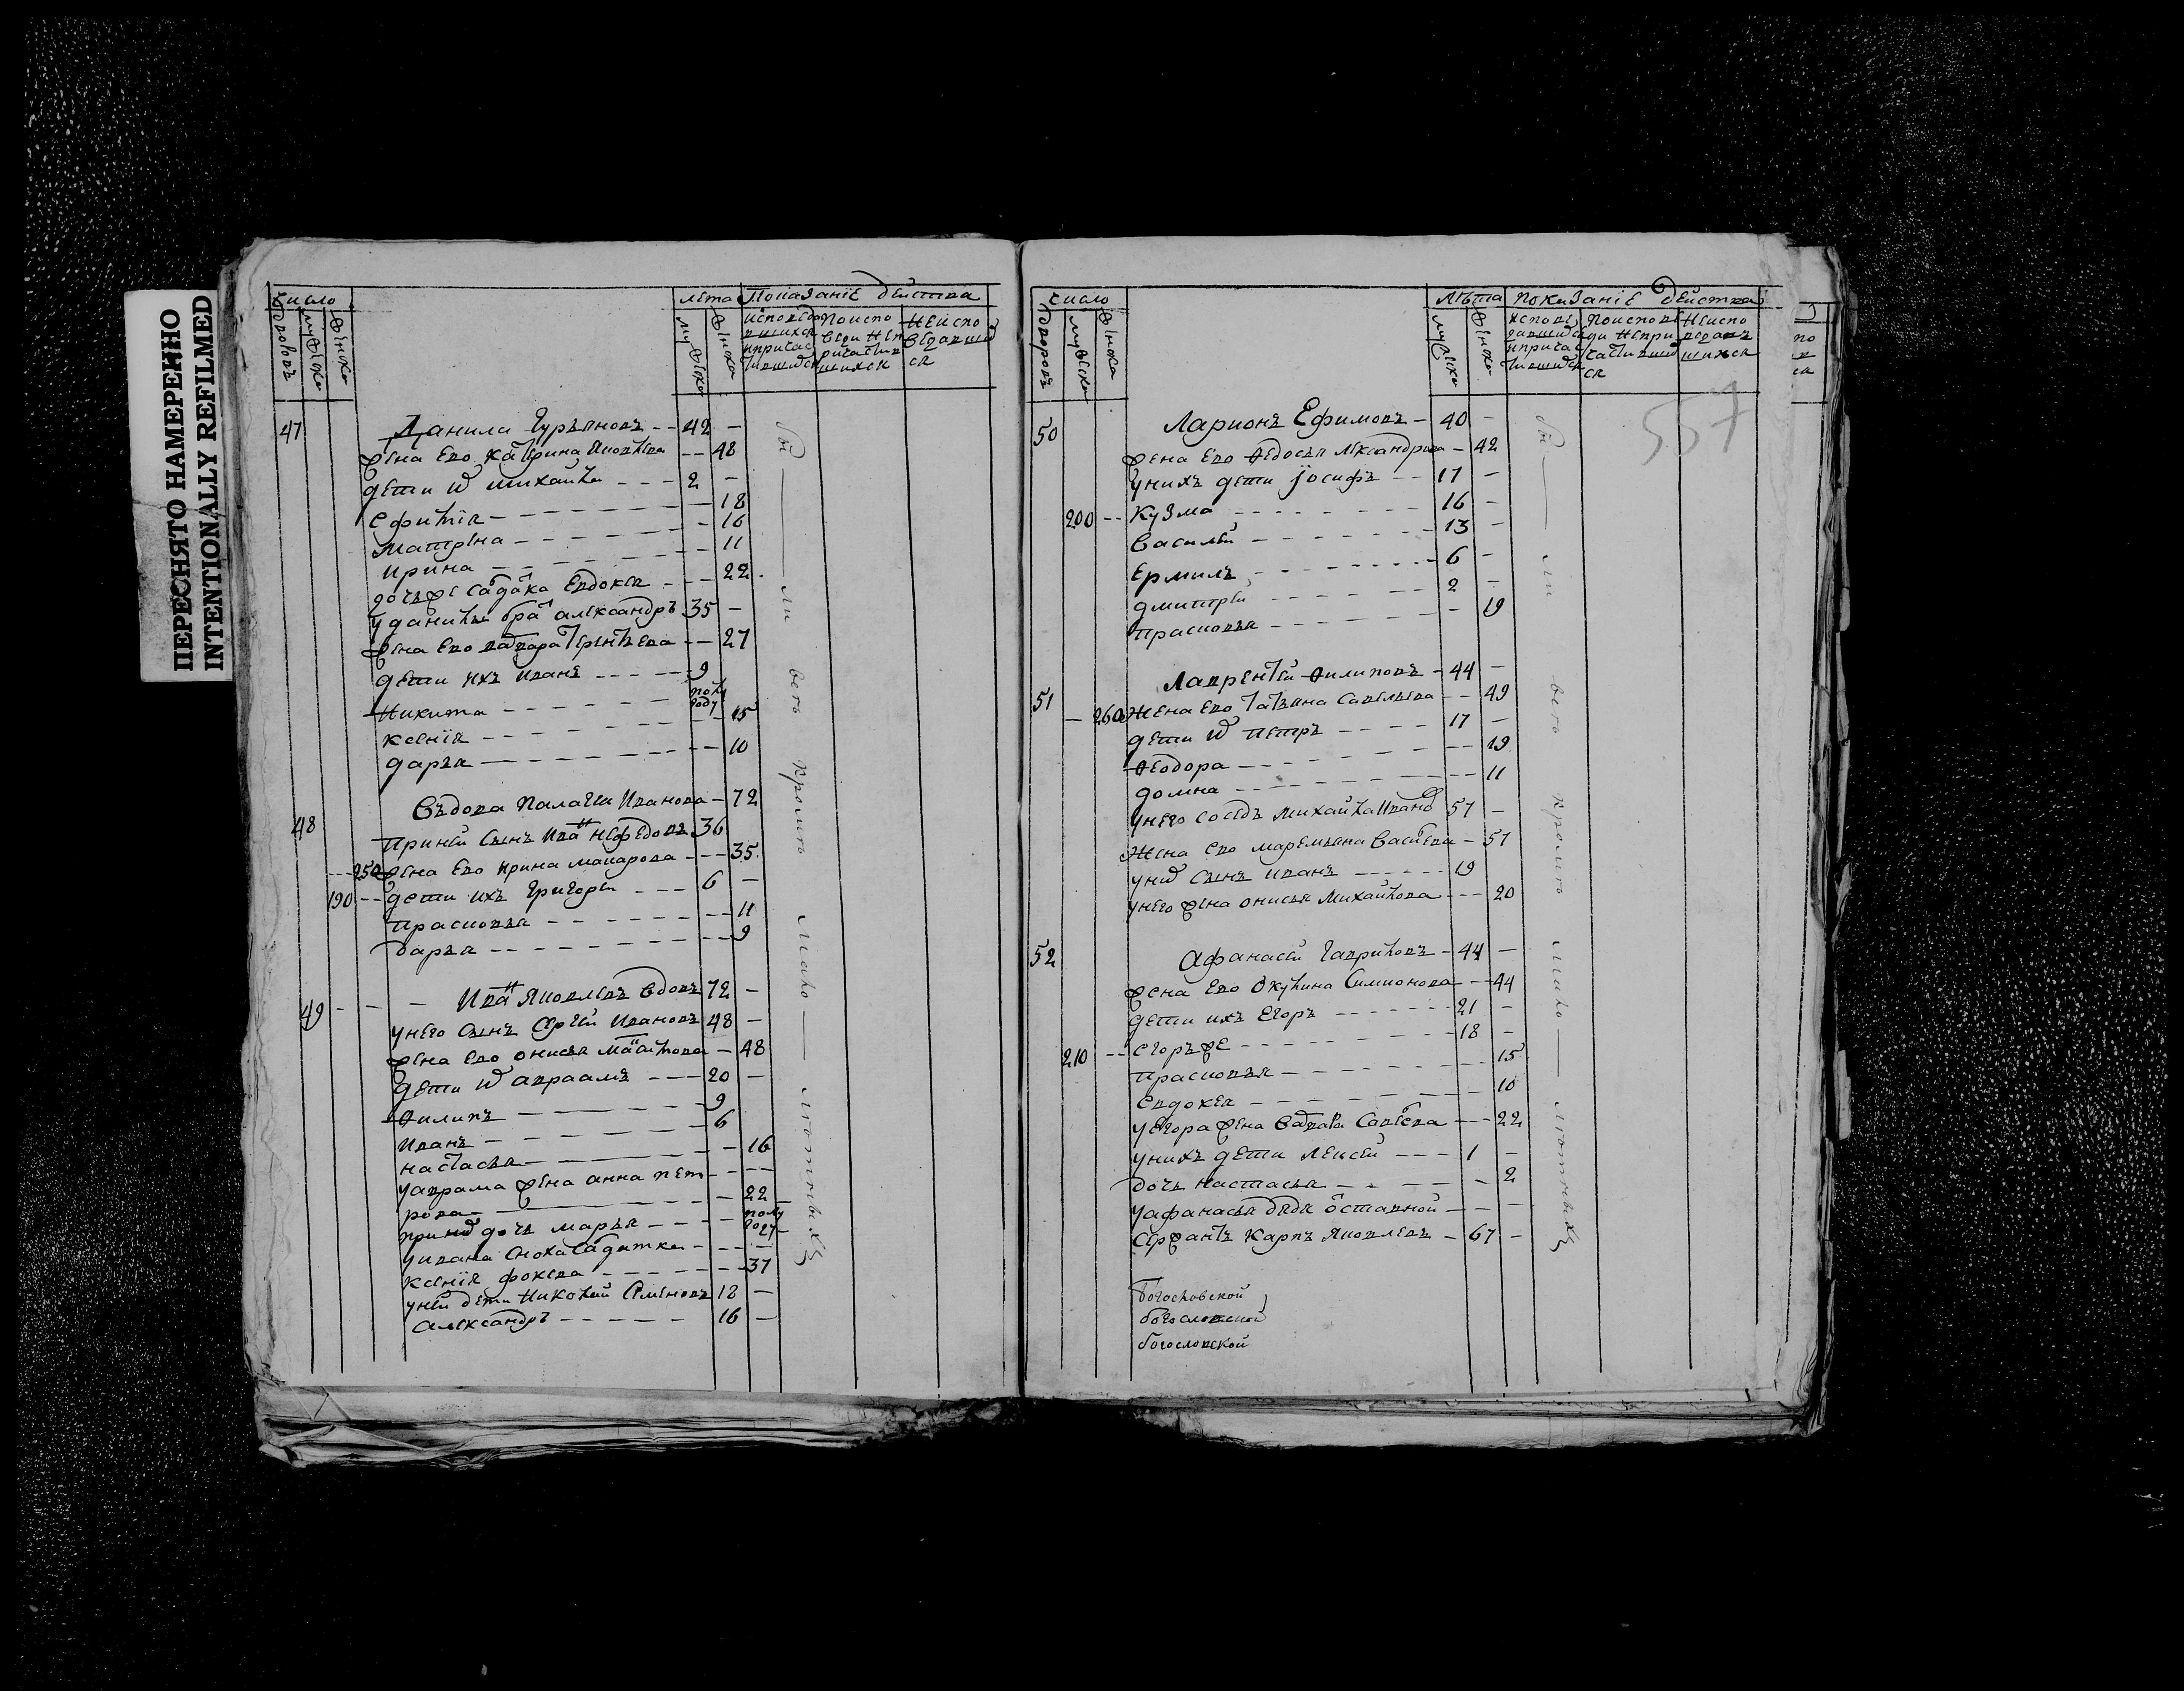 ПЕРЕСНЯТО НАМЕРЕННО
INTENTIONALLY REFILMED
число
дворовъ
мужеска
женска
лета
мужеска
женска
Показаніе действа
исповедо
вшихся
и причас
тившихся
по испо
веди не п
ричастив
шихся
не испо
ведавших
ся
47
Данила Гурьяновъ - - 42 -
жена ево Катерина Яковлева - - 48
дети их Михайла - - - 2 -
Ефимія - - - - - - - 18
Матрена - - - - - - 16
Ирина - - - - - - - 11
дочь же салдатка Евдокея - - - 22
у Данилы брат Александръ 35 -
жена ево Варвара Терентьева - - 27
дети ихъ Иванъ - - - - - 9
Никита - - - - - - полу году
Ксенія - - - - - - - 15
Дарья - - - - - - - - 10
48
Въдова Палагия Иванова - 72
При ней сынъ Иван Нефедовъ 36
250 жена ево Ирина Макарова - - - 35
190 - - дети ихъ Григорей - - - 6 -
Прасковья - - - - - - - - 11
Дарья - - - - - - - - - 9
49 - - - Иван Яковлевъ вдовъ 72 -
у него сынъ Сергей Ивановъ 48 -
жена ево Онисья Михайлова - 48
дети их Авраамъ - - - 20 -
Филипъ - - - - - - 9
Иванъ - - - - - - 6
Настасья - - - - - - 16
у Аврама жена Анна Пет - - - -
рова - - - - - - - - 22
при них дочь Марья - - - - полу году -
у Ивана сноха салдатка - - - -
Ксенія Фокеева - - - - - - - 37
у ней дети Николай Семеновъ 18 -
Александръ - - - - - 16 -
были веть кроме мало летных
число
дворовъ
мужеска
женска
Лѣта
мужеска
женска
Показаніе действа
исповe
давшихся
и причас
тившихся
по испове
ди непри
частивших
ся
не испо
ведавъ
шихся
557
50
Ларионъ Ефимовъ - 40 -
жена ево Федосья Лександрова - 42
у нихъ дети Іосифъ - - 17 -
200 - - Кузма - - - - - - - 16 -
Василей - - - - - - - 13 -
Ермилъ - - - - - - - - 6 -
Дмитрей - - - - - - 2 -
Прасковья - - - - - - - 19
51
Лаврентей Филиповъ - 44 -
- 260 Жена ево Татьяна Савельева - - 49
дети их Петръ - - - - 17 -
Феодора - - - - - - - - 19
Домна - - - - - - - - - 11
у него соседъ Михайла Иванов 57 -
Жена ево Маремьяна Васильева - 57
у них сынъ Иванъ - - - - - 19
у него жена Онисья Михайлова - - - 20
52
Афанасей Гавриловъ - 44 -
жена ево Окулина Симионова - - 44
дети ихъ Егоръ - - - - - - - 21 -
210 - - Егоръ же - - - - - - - - 18 -
Прасковья - - - - - - - - - 15
Евдокея - - - - - - - - - 10
у Егора жена Варвара Савельева - - - 22
у нихъ дети Лексей - - - 1 -
Дочь Настасья - - - - - - 2
у Афанасья дядя оставной - - -
Сержантъ Карпъ Яковлевъ - 67 -
были веть кроме мало летных
Богословской
богословской
богословской